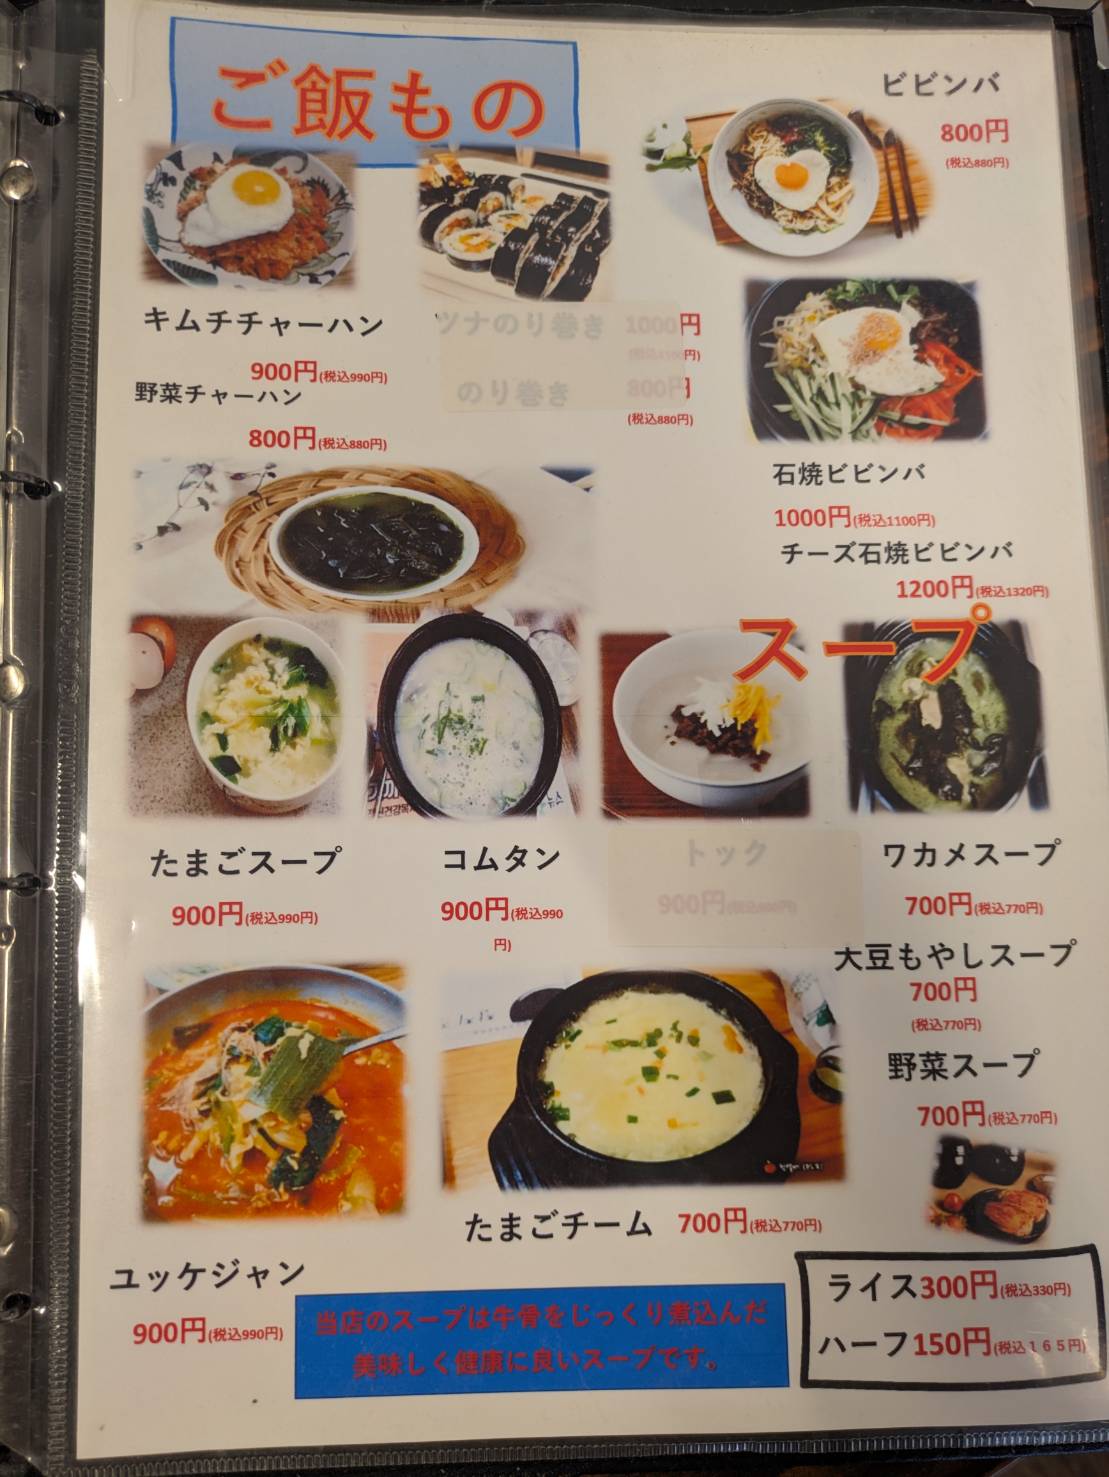 ご飯もの
ビビンバ
800円
(税込880円)
キムチチャーハン
900円(税込990円)
野菜チャーハン
800円(税込880円)
ツナのり巻き 1000円
(税込1100円)
のり巻き 800円
(税込880円)
石焼ビビンバ
1000円(税込1100円)
チーズ石焼ビビンバ
1200円(税込1320円)
スープ
たまごスープ
900円(税込990円)
コムタン
900円(税込990
円)
トック
900円
ワカメスープ
700円(税込770円)
大豆もやしスープ
700円
(税込770円)
野菜スープ
700円(税込770円)
たまごチーム 700円(税込770円)
ユッケジャン
900円(税込990円)
当店のスープは牛骨をじっくり煮込んだ
美味しく健康に良いスープです。
ライス300円(税込330円)
ハーフ150円(税込１６５円)